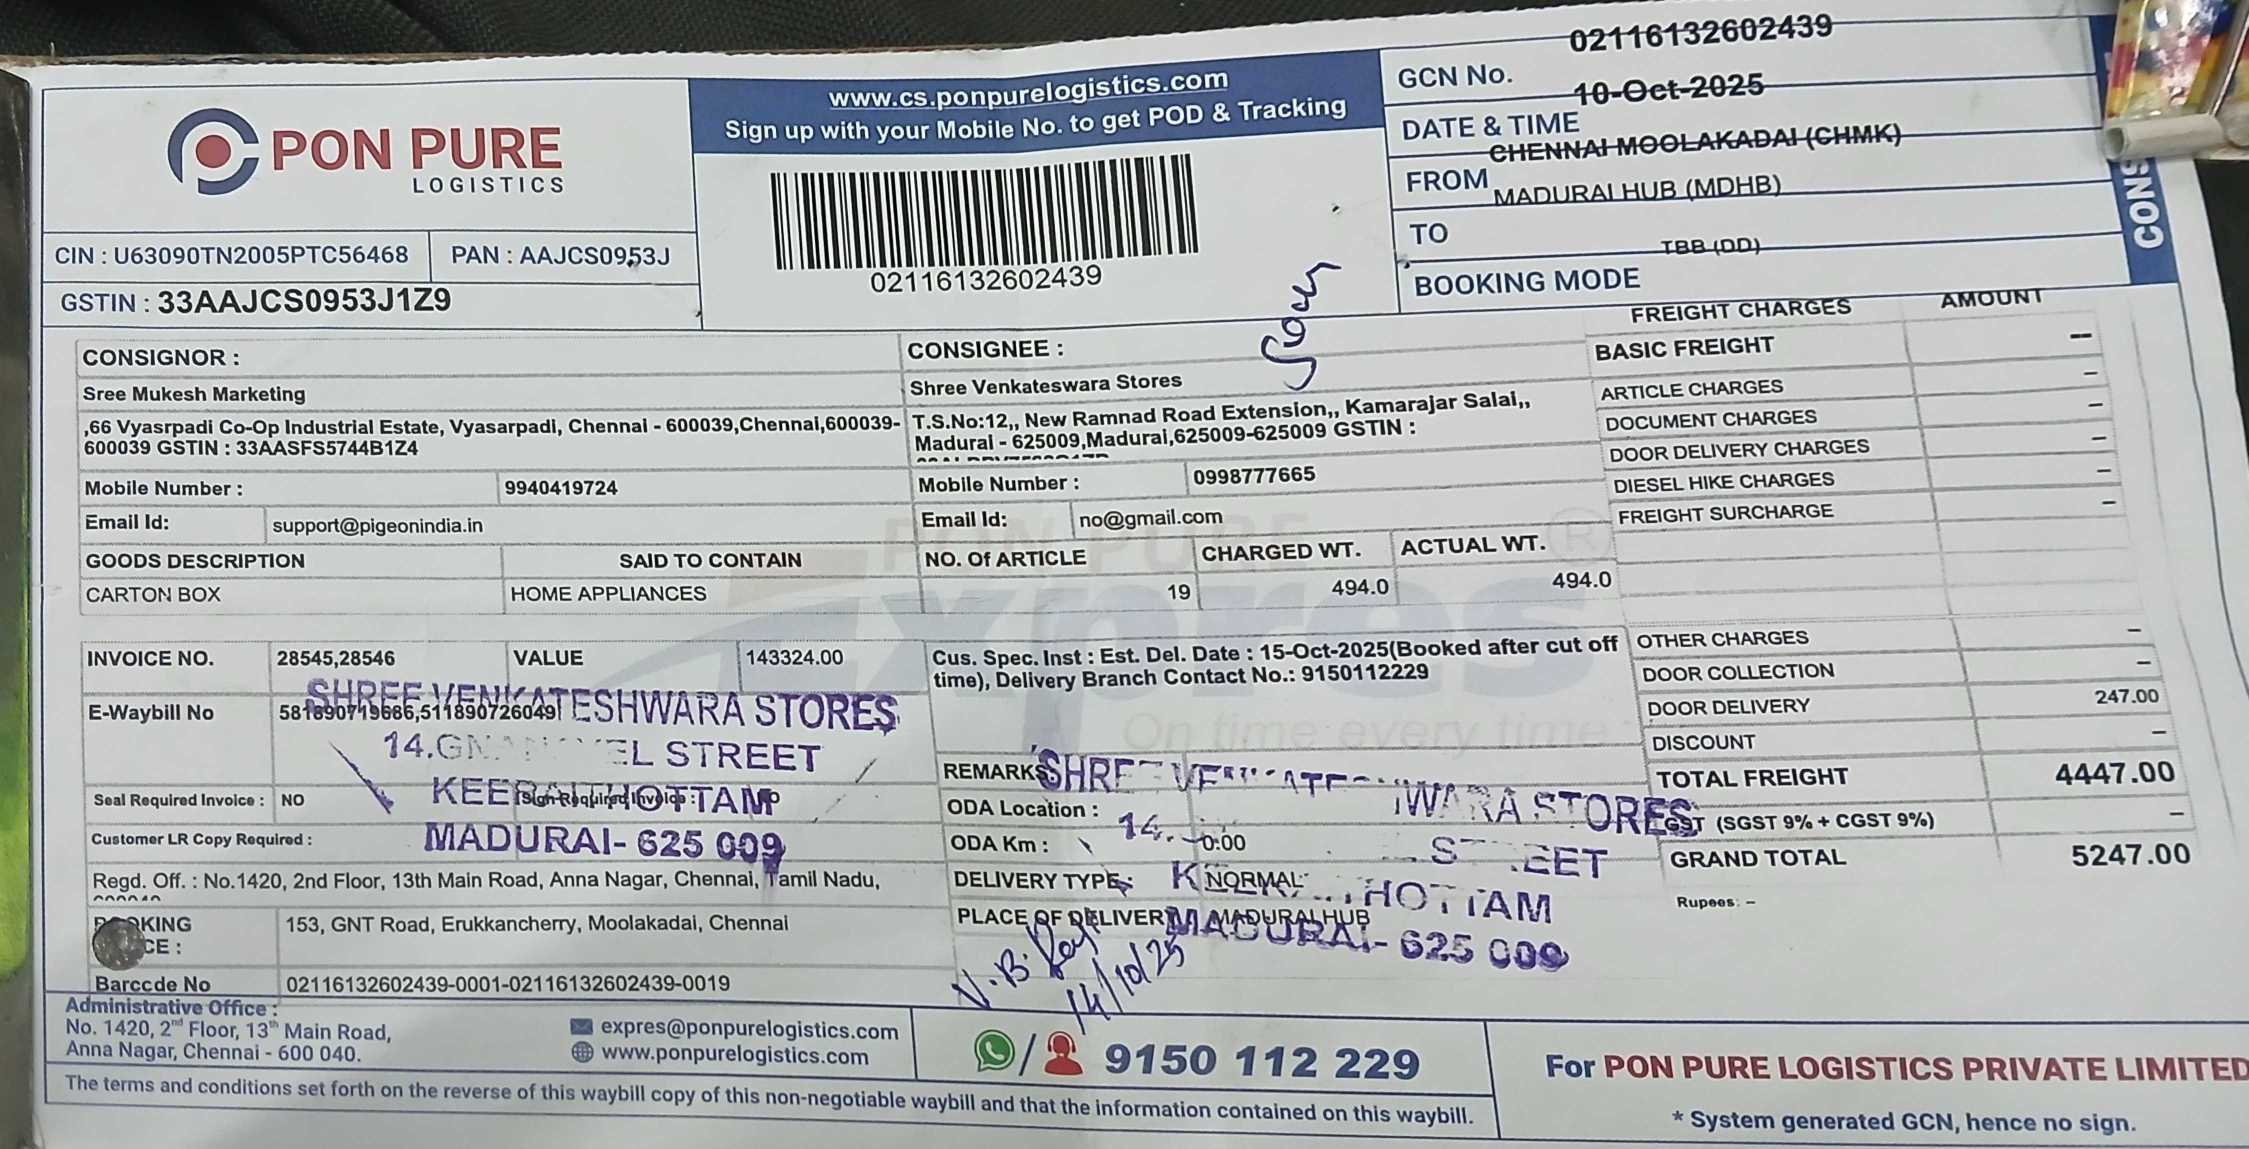 PON PURE
LOGISTICS
CIN : U63090TN2005PTC56468
PAN : AAJCS0953J
GSTIN : 33AAJCS0953J1Z9
www.cs.ponpurelogistics.com
Sign up with your Mobile No. to get POD & Tracking
02116132602439
GCN No. 02116132602439
DATE & TIME 10-Oct-2025
FROM CHENNAI MOOLAKADAI (CHMK)
TO MADURAI HUB (MDHB)
BOOKING MODE TBB (DD)
CONS
CONSIGNOR :
Sree Mukesh Marketing
,66 Vyasrpadi Co-Op Industrial Estate, Vyasarpadi, Chennai - 600039,Chennai,600039-
600039 GSTIN : 33AASFS5744B1Z4
Mobile Number : 9940419724
Email Id: support@pigeonindia.in
CONSIGNEE :
Shree Venkateswara Stores
T.S.No:12,, New Ramnad Road Extension,, Kamarajar Salai,,
Madurai - 625009,Madurai,625009-625009 GSTIN :
Mobile Number : 0998777665
Email Id: no@gmail.com
GOODS DESCRIPTION SAID TO CONTAIN NO. Of ARTICLE CHARGED WT. ACTUAL WT.
CARTON BOX HOME APPLIANCES 19 494.0 494.0
PON PURE
Expres
On time every time
FREIGHT CHARGES AMOUNT
BASIC FREIGHT --
ARTICLE CHARGES –
DOCUMENT CHARGES –
DOOR DELIVERY CHARGES –
DIESEL HIKE CHARGES –
FREIGHT SURCHARGE –
OTHER CHARGES –
DOOR COLLECTION –
DOOR DELIVERY 247.00
DISCOUNT –
TOTAL FREIGHT 4447.00
GST (SGST 9% + CGST 9%) –
GRAND TOTAL 5247.00
Rupees: –
INVOICE NO. 28545,28546 VALUE 143324.00
E-Waybill No 581890719686,511890726049
SHREE VENKATESHWARA STORES
14.
STREET
KEERAITHOTTAM
MADURAI- 625 009
Seal Required Invoice : NO Sign Required Invoice :
Customer LR Copy Required :
Regd. Off. : No.1420, 2nd Floor, 13th Main Road, Anna Nagar, Chennai, Tamil Nadu,
BOOKING
OFFICE :
153, GNT Road, Erukkancherry, Moolakadai, Chennai
Barccde No 02116132602439-0001-02116132602439-0019
Cus. Spec. Inst : Est. Del. Date : 15-Oct-2025(Booked after cut off
time), Delivery Branch Contact No.: 9150112229
REMARKS
ODA Location :
ODA Km : 0:00
DELIVERY TYPE: NORMAL
PLACE OF DELIVERY MADURAI HUB
SHREE VENKATESHWARA STORES
14.
STREET
KEERAITHOTTAM
MADURAI- 625 009
14/10/25
Administrative Office :
No. 1420, 2nd Floor, 13th Main Road,
Anna Nagar, Chennai - 600 040.
expres@ponpurelogistics.com
www.ponpurelogistics.com
9150 112 229
For PON PURE LOGISTICS PRIVATE LIMITED
* System generated GCN, hence no sign.
The terms and conditions set forth on the reverse of this waybill copy of this non-negotiable waybill and that the information contained on this waybill.